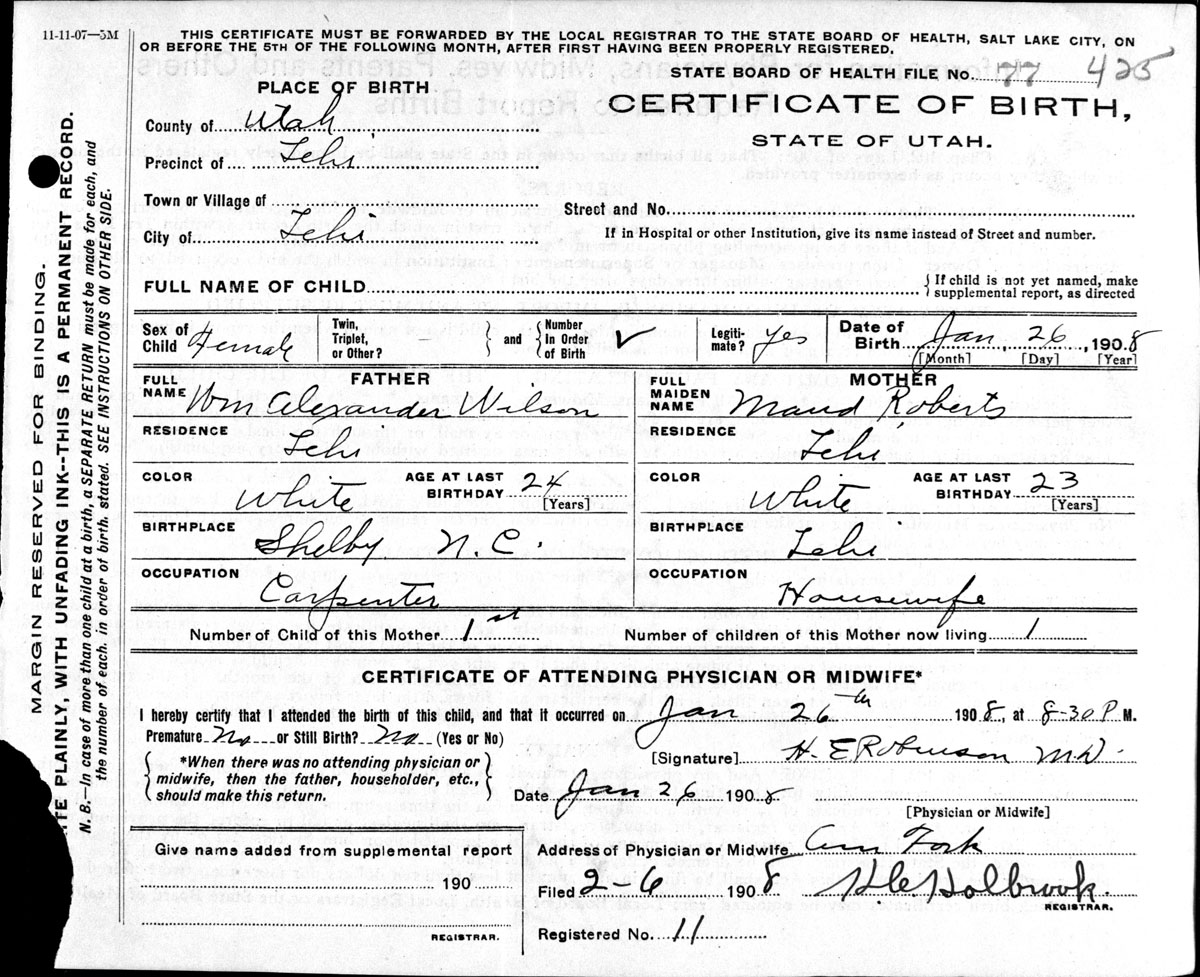 11-11-07—5M
THIS CERTIFICATE MUST BE FORWARDED BY THE LOCAL REGISTRAR TO THE STATE BOARD OF HEALTH, SALT LAKE CITY, ON
OR BEFORE THE 5TH OF THE FOLLOWING MONTH, AFTER FIRST HAVING BEEN PROPERLY REGISTERED.
STATE BOARD OF HEALTH FILE No. 77 425
PLACE OF BIRTH
CERTIFICATE OF BIRTH,
STATE OF UTAH.
County of Utah
Precinct of Lehi
Town or Village of
Street and No.
City of Lehi
If in Hospital or other Institution, give its name instead of Street and number.
FULL NAME OF CHILD
{ If child is not yet named, make
supplemental report, as directed
Sex of Child Female
Twin, Triplet, or Other? } and { Number In Order of Birth ✓
Legitimate? Yes
Date of Birth Jan 26, 1908
[Month] [Day] [Year]
FATHER
FULL NAME Wm Alexander Wilson
RESIDENCE Lehi
COLOR White
AGE AT LAST BIRTHDAY 24
[Years]
BIRTHPLACE Shelby N. C.
OCCUPATION Carpenter
MOTHER
FULL MAIDEN NAME Maud Roberts
RESIDENCE Lehi
COLOR White
AGE AT LAST BIRTHDAY 23
[Years]
BIRTHPLACE Lehi
OCCUPATION Housewife
Number of Child of this Mother 1st
Number of children of this Mother now living 1
CERTIFICATE OF ATTENDING PHYSICIAN OR MIDWIFE*
I hereby certify that I attended the birth of this child, and that it occurred on Jan 26th 1908, at 8-30 P M.
Premature No or Still Birth? No (Yes or No)
[Signature] H. E Robinson M.D.
{ *When there was no attending physician or
midwife, then the father, householder, etc.,
should make this return. }
Date Jan 26 1908
[Physician or Midwife]
Give name added from supplemental report
190
REGISTRAR.
Address of Physician or Midwife Am Fork
Filed 2-6 1908 Holbrook.
REGISTRAR.
Registered No. 11
MARGIN RESERVED FOR BINDING.
PLAINLY, WITH UNFADING INK--THIS IS A PERMANENT RECORD.
N. B.—In case of more than one child at a birth, a SEPARATE RETURN must be made for each, and
the number of each, in order of birth, stated. SEE INSTRUCTIONS ON OTHER SIDE.